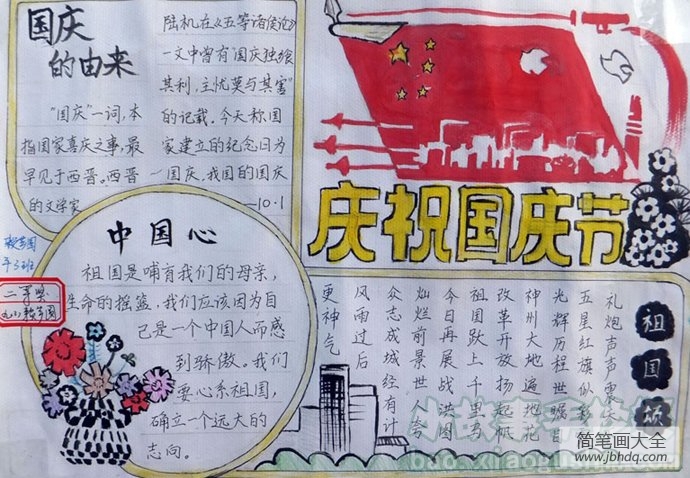 国庆
的由来
"国庆"一词,本
指国家喜庆之事,最
早见于西晋。西晋
的文学家
陆机在《五等诸侯论》
一文中曾有国庆独飨
其利,主忧莫与其害"
的记载。今天称国
家建立的纪念日为
国庆,我国的国庆
—10·1
庆祝国庆节
二等奖
中国心
祖国是哺育我们的母亲,
生命的摇篮,我们应该因为自
己是一个中国人而感
到骄傲。我们
要心系祖国,
确立一个远大的
志向。
祖国颂
礼炮声声震
五星红旗纵彩
光辉历程世瞩目
神州大地遍地花
改革开放扬起帆
祖国跃上千里马
今日再展战洪图
灿烂前景世
众志成城经有计
风雨过后
更神气
简笔画大全
www.jbhdq.com